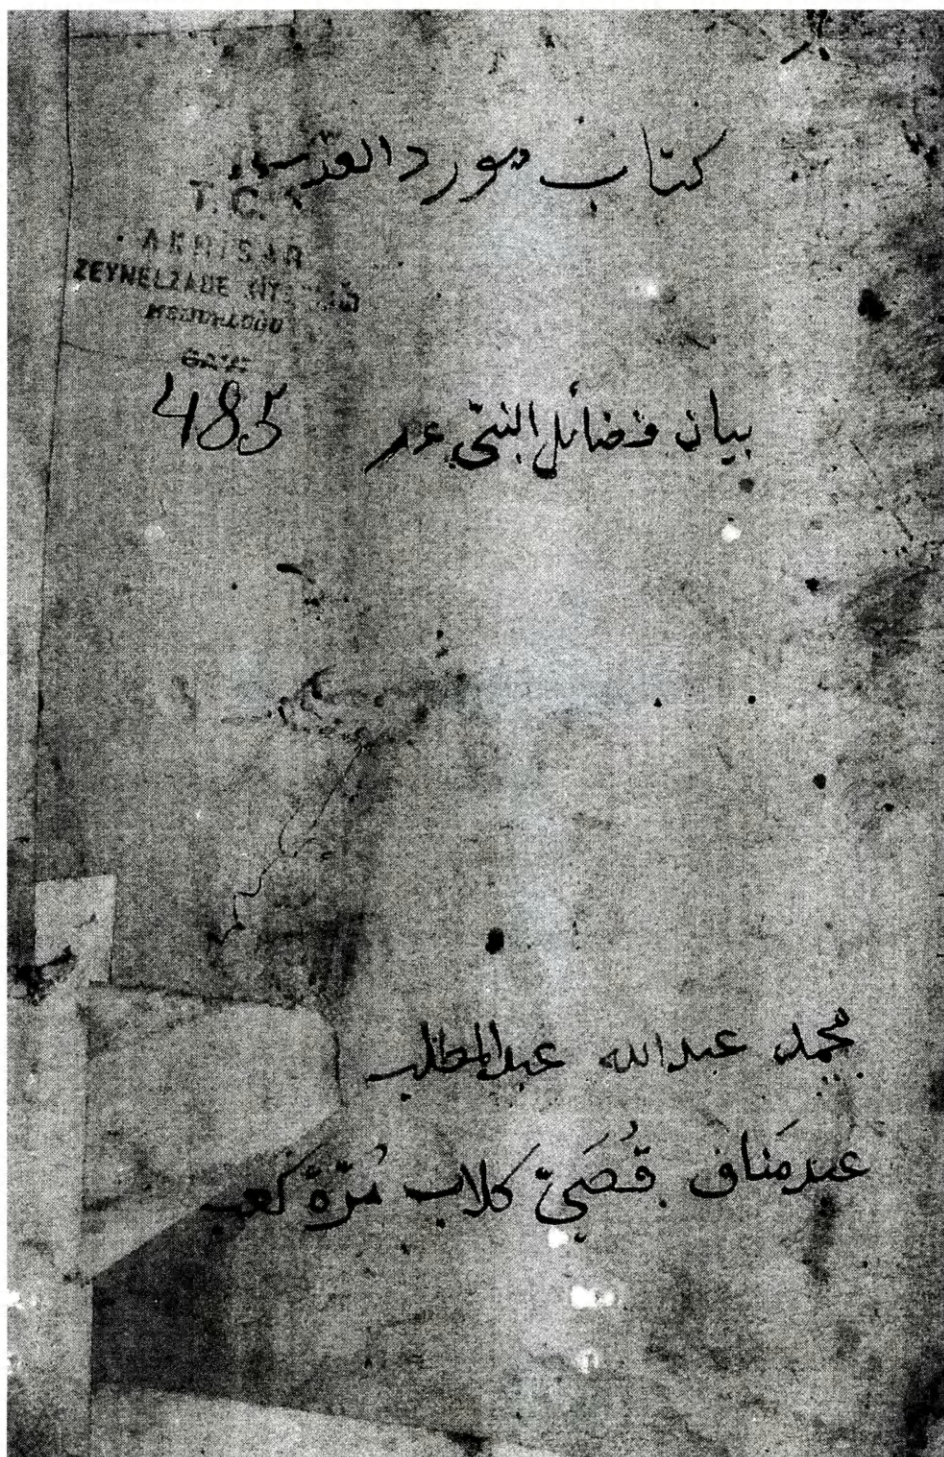 كتاب مورد العذب
T.C.
AKHİSAR
ZEYNELZADE
485
بيان فضائل النبي عم
محمد عبد الله عبد المطلب
عبد مناف قُصَيّ كلاب مُرّة كعب